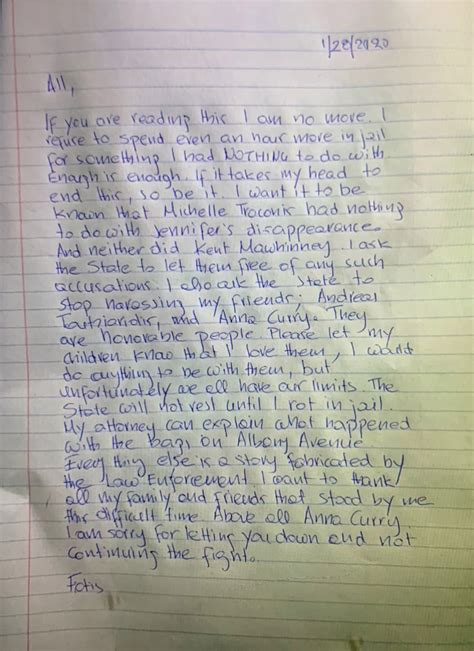 1/28/2020
All,
If you are reading this I am no more. I
refuse to spend even an hour more in jail
for something I had NOTHING to do with
Enough is enough. If it takes my head to
end this, so be it. I want it to be
known that Michelle Troconis had nothing
to do with Jennifer's disappearance.
And neither did Kent Mawhinney. I ask
the State to let them free of any such
accusations. I also ask the State to
stop harassing my friends, Andreas
Toutziaridis, and Anna Curry. They
are honorable people. Please let my
children know that I love them, I would
do anything to be with them, but
unfortunately we all have our limits. The
State will not rest until I rot in jail.
My attorney can explain what happened
with the bags on Albany Avenue
Every thing else is a story fabricated by
the Law Enforcement I want to thank
all my family and friends that stood by me
this difficult time Above all Anna Curry.
I am sorry for letting you down and not
continuing the fight.
Fotis